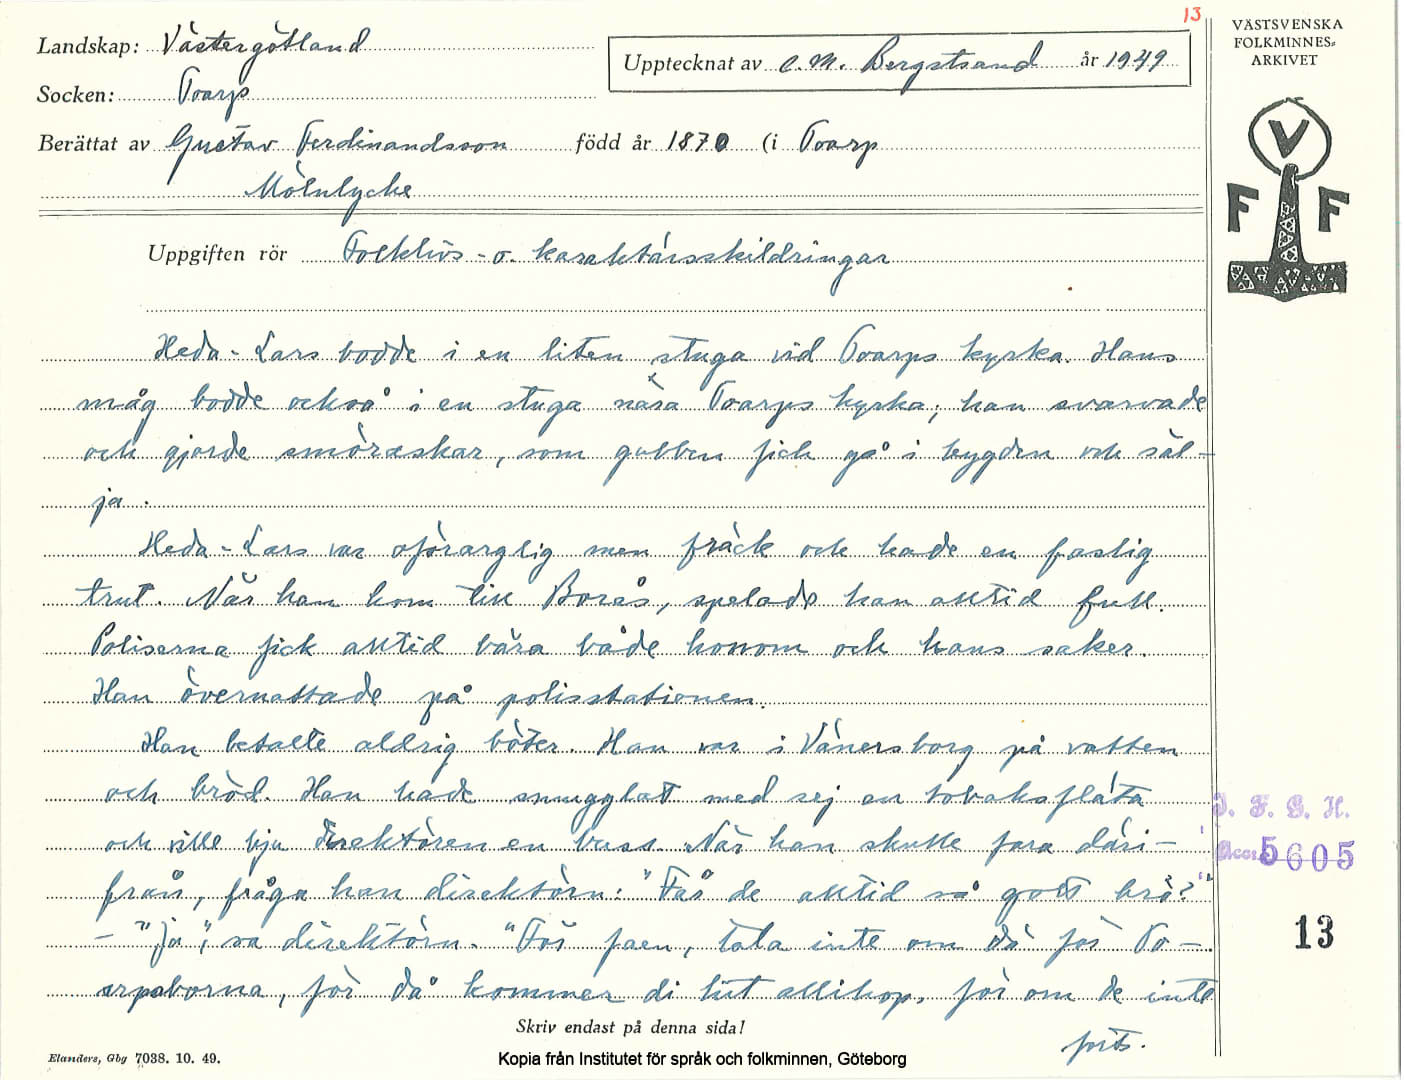 13
Landskap: Västergötland
Upptecknat av C. M. Bergstrand år 1949
Socken: Toarp
Berättat av Gustav Ferdinandsson född år 1870 (i Toarp
Mölnlycke
Uppgiften rör Folklivs- o. karaktärsskildringar
Heda-Lars bodde i en liten stuga vid Toarps kyrka. Hans
måg bodde också i en stuga nära Toarps kyrka; han svarvade
och gjorde smöraskar, som gubben fick gå i bygden och säl-
ja.
Heda-Lars var oförarglig men fräck och hade en faslig
trut. När han kom till Borås, spelade han alltid full.
Poliserna fick alltid bära både honom och hans saker.
Han övernattade på polisstationen.
Han betalte aldrig böter. Han var i Vänersborg på vatten
och bröd. Han hade smugglat med sej en tobaksfläta
och ville bju direktören en buss. När han skulle fara däri-
från, fråga han direktörn: "Fås de alltid så gott brö?"
- "Ja", sa direktörn. "För faen, tala inte om dä för To-
arpaborna, för då kommer di hit allihop, för om de inte
forts.
Skriv endast på denna sida!
Elanders, Gbg 7038. 10. 49.
Kopia från Institutet för språk och folkminnen, Göteborg
VÄSTSVENSKA
FOLKMINNES-
ARKIVET
V
F F
I. F. G. H.
Acc. 5605
13